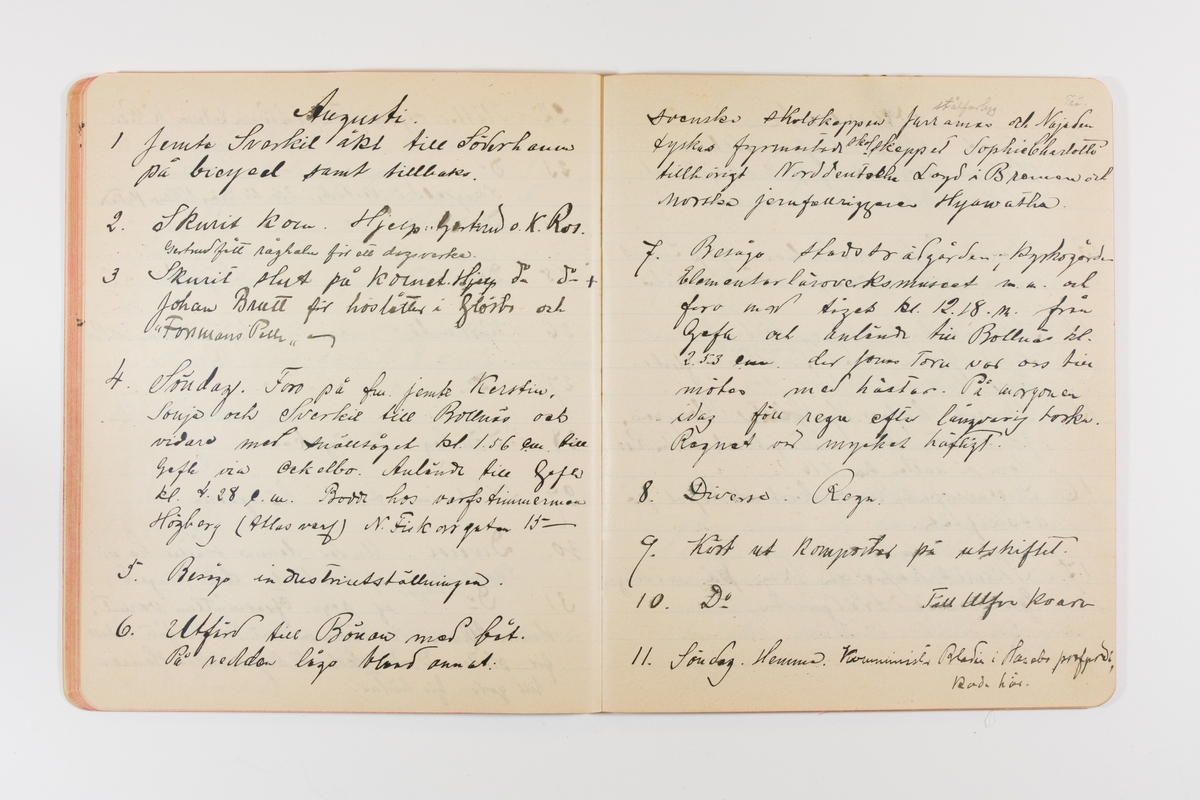 Augusti.
1 Jemte Sverkil åkt till Söderhamn
på bicycel samt tillbaka.
2. Skurit korn. Hjelp: Gertrud o. K. Ros.
Gertrud fått råghalm för ett dagsverke.
3 Skurit slut på kornet. Hjelp do do +
Johan Bratt för höslåtter i Glösbo och
"Forsmans Pelle"
4. Söndag. Foro på fm. jemte Kerstin,
Sonja och Sverkil till Bollnäs och
vidare med snälltåget kl. 1.56 e.m. till
Gefle via Ockelbo. Anlände till Gefle
kl. 4.28 e.m. Bodde hos varfstimmerman
Högberg (Atlas varf) N. Fiskargatan 15
5. Besågo industriutställningen.
6. Utfärd till Bönan med båt.
På redden lågo bland annat:
svenska skolskeppen Jarramas och Najaden
tyska fyrmastade skolskeppet Sophie Charlotte
tillhörigt Norddeutsche Loyd i Bremen och
norska jernfullriggaren Hyawatha.
7. Besågo stadsträdgården, kyrkogården
Elementarläroverksmuseet m.a. och
foro med tåget kl. 12.18 m. från
Gefle och anlände till Bollnäs kl.
2.53 e.m. der Jonas Toru var oss till
mötes med hästar. På morgonen
idag föll regn efter långvarig torka.
Regnet var mycket häftigt.
8. Diverse. Regn.
9. Kört ut komposter på utskiftet.
10. Do Till Ulfve kvarn
11. Söndag. Hemma. Komminister Bladin i Hanebo prestgård,
voro här.